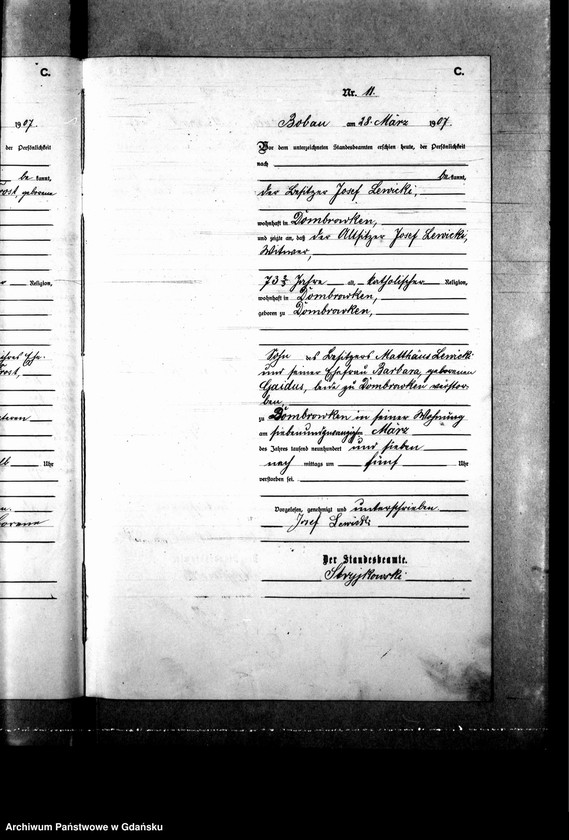 C.
1907.
der Persönlichkeit
be kannt,
geborene
Religion,
Uhr
C.
Nr. 11.
Bobau am 28. März 1907.
Vor dem unterzeichneten Standesbeamten erschien heute, der Persönlichkeit
nach
be kannt,
der Besitzer Josef Lewicki,
wohnhaft in Dombrowken,
und zeigte an, daß der Altsitzer Josef Lewicki,
Witwer,
73 Jahre alt, katholischer Religion,
wohnhaft in Dombrowken,
geboren zu Dombrowken,
Sohn des Besitzers Matthäus Lewicki
und seiner Ehefrau Barbara, geborenen
Gaidus, beide zu Dombrowken verstor-
ben,
zu Dombrowken in seiner Wohnung
am siebenundzwanzigsten März
des Jahres tausend neunhundert und sieben
nach mittags um fünf Uhr
verstorben sei.
Vorgelesen, genehmigt und unterschrieben
Josef Lewicki
Der Standesbeamte.
Stryjkowski
Archiwum Państwowe w Gdańsku